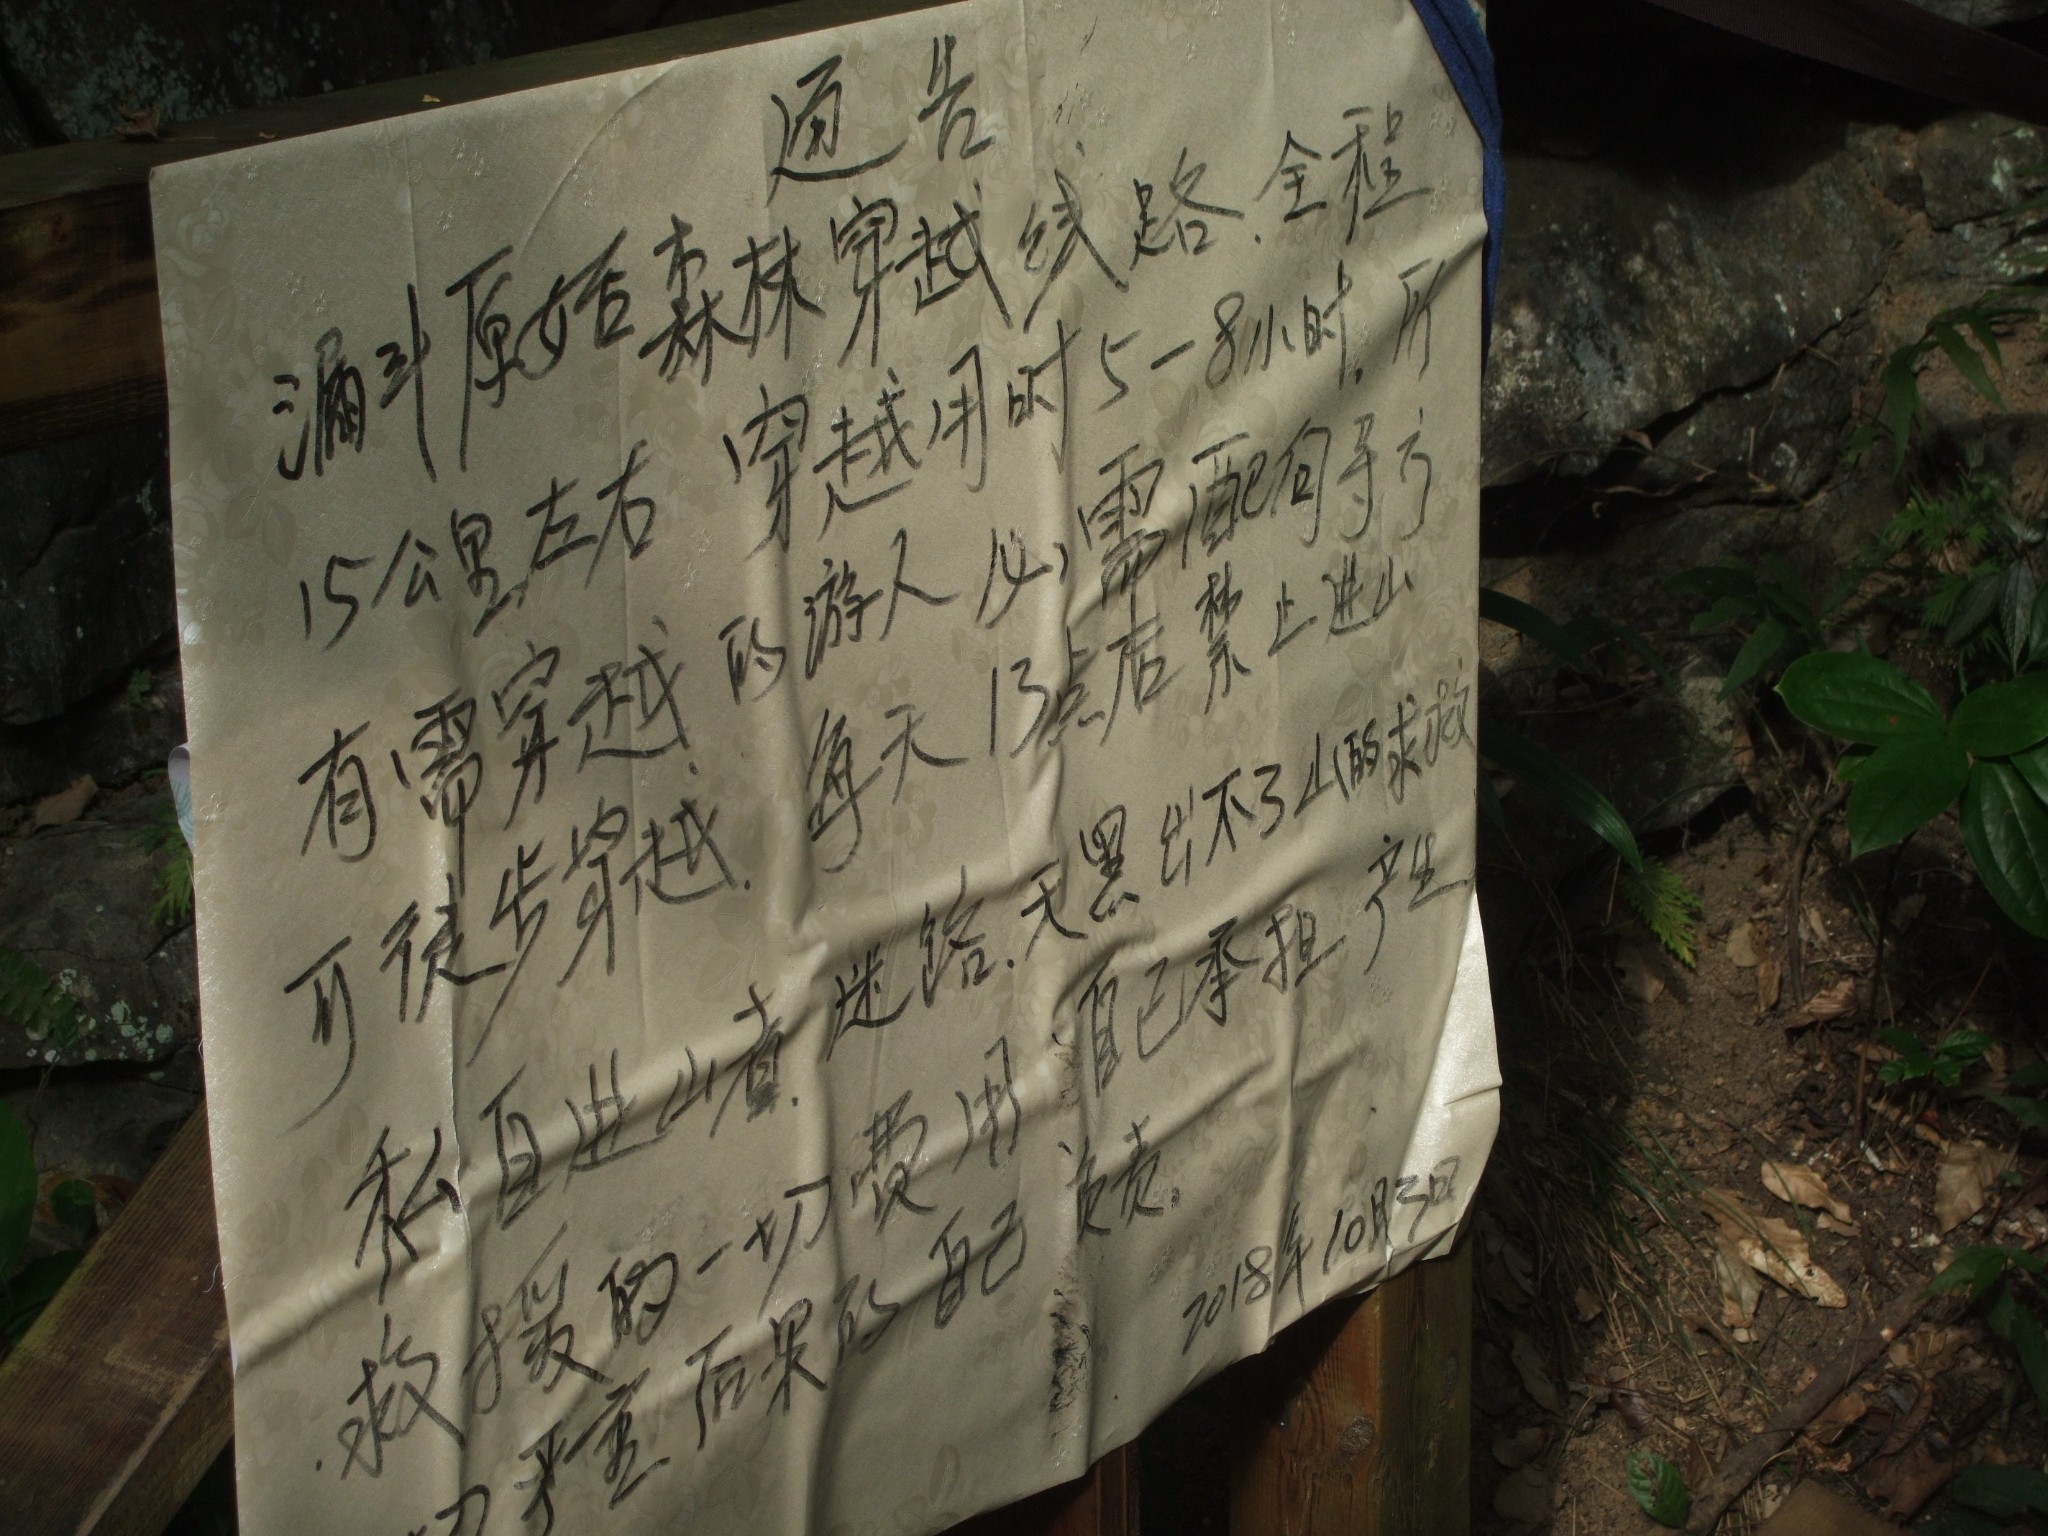 通告
漏斗原始森林穿越线路.全程
15公里左右 穿越用时5-8小时.所
有需穿越.的游人必需配向导方
可徒步穿越.每天13点后禁止进山
私自进山者.迷路.天黑出不了山的求救
.救援的一切费用自己承担产生
切严重后果的自己负责.
2018年10月3日